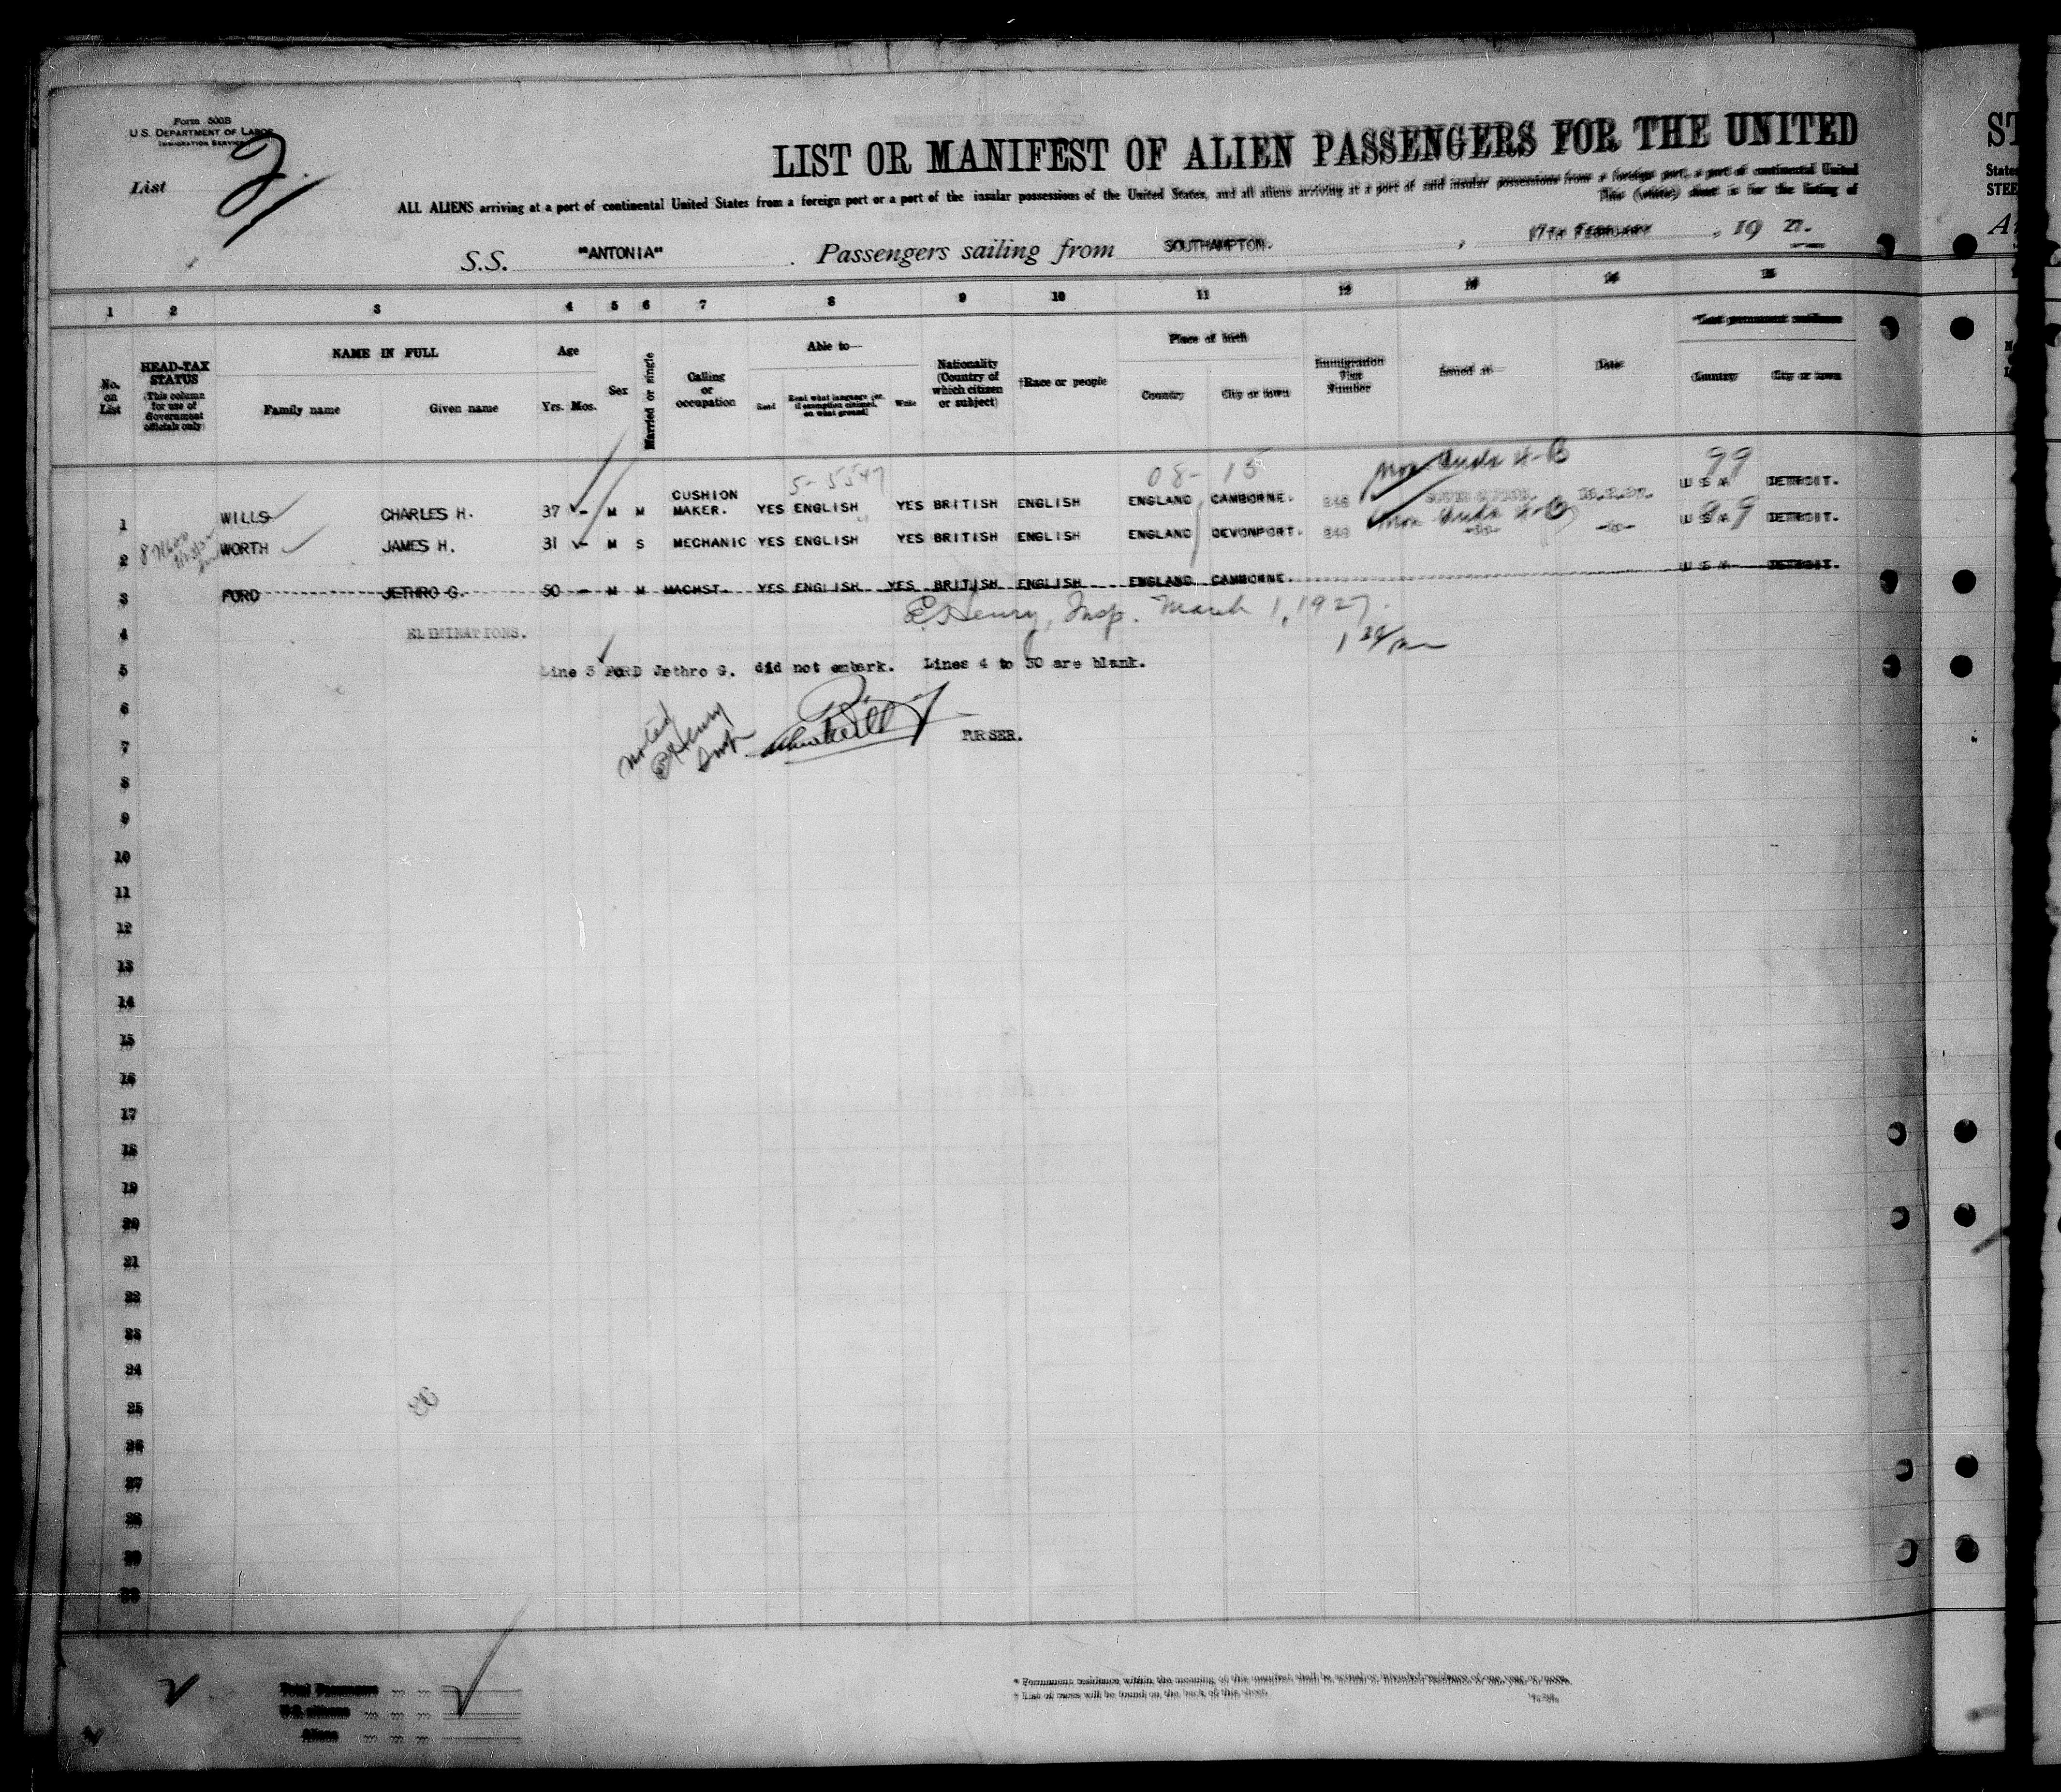 Form 500B
U.S. DEPARTMENT OF LABOR
IMMIGRATION SERVICE
List 21
LIST OR MANIFEST OF ALIEN PASSENGERS FOR THE UNITED
ST
ALL ALIENS arriving at a port of continental United States from a foreign port or a port of the insular possessions of the United States, and all aliens arriving at a port of said insular possessions from a foreign port, a port of continental United
States
This (white) sheet is for the listing of
STEE
S.S. "ANTONIA" . Passengers sailing from SOUTHAMPTON. , 17TH FEBRUARY , 19 27.
1 2 3 4 5 6 7 8 9 10 11 12 13 14 15
No. on List
HEAD-TAX STATUS (This column for use of Government officials only)
NAME IN FULL
Family name Given name
Age
Yrs. Mos.
Sex
Married or single
Calling or occupation
Able to—
Read Read what language (or, if exemption claimed, on what ground) Write
Nationality (Country of which citizen or subject)
†Race or people
Place of birth
Country City or town
Immigration Visa Number
Issued at—
Date
*Last permanent residence
Country City or town
5-5547 08-15 99
1 WILLS CHARLES H. 37 - M M CUSHION MAKER. YES ENGLISH YES BRITISH ENGLISH ENGLAND CAMBORNE. U S A DETROIT.
99
2 WORTH JAMES H. 31 - M S MECHANIC YES ENGLISH YES BRITISH ENGLISH ENGLAND DEVONPORT. -do- -do- U S A DETROIT.
3 FORD JETHRO G. 50 - M M MACHST. YES ENGLISH YES BRITISH ENGLISH ENGLAND CAMBORNE. U S A DETROIT.
E Henry, Insp. March 1, 1927.
4 ELIMINATIONS.
5 Line 3 FORD Jethro G. did not embark. Lines 4 to 30 are blank.
6
noted
E Henry
Insp
7 PURSER.
8
9
10
11
12
13
14
15
16
17
18
19
20
21
22
23
24
25
26
27
28
29
30
Total Passengers
U.S. citizens
Aliens
* Permanent residence within the meaning of this manifest shall be actual or intended residence of one year or more.
† List of races will be found on the back of this sheet.